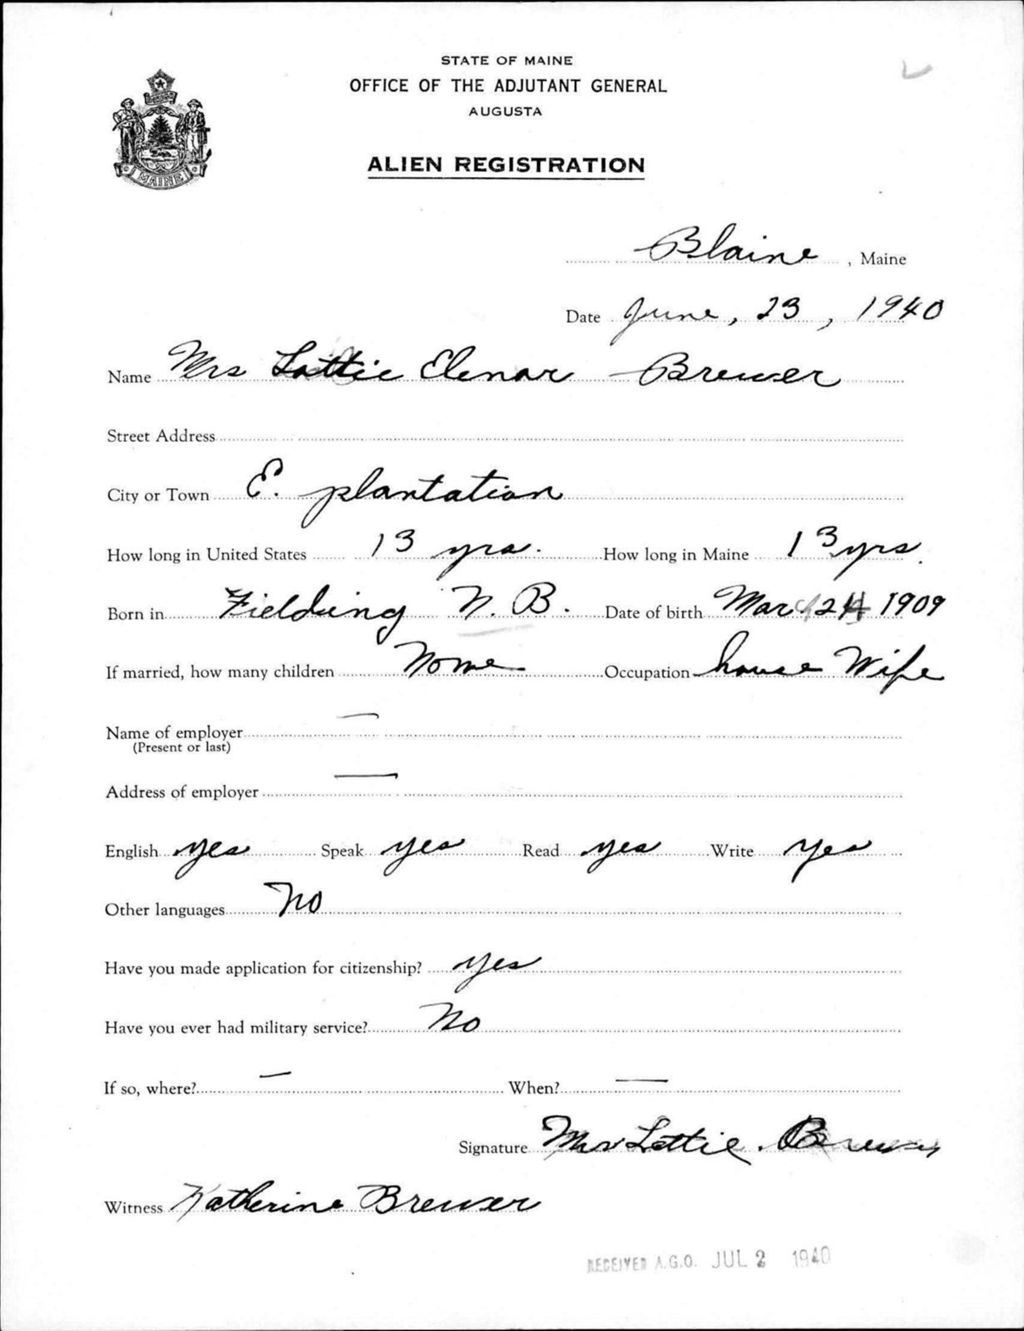 STATE OF MAINE
OFFICE OF THE ADJUTANT GENERAL
AUGUSTA
ALIEN REGISTRATION
MAINE
Blaine, Maine
Date June, 23, 1940
Name Mrs Lottie Elenor Brewer
Street Address
City or Town E. plantation
How long in United States 13 yrs. How long in Maine 13 yrs.
Born in Fielding N. B. Date of birth Mar. 24 1909
If married, how many children None Occupation house Wife
Name of employer —
(Present or last)
Address of employer —
English yes Speak yes Read yes Write yes
Other languages No
Have you made application for citizenship? yes
Have you ever had military service? No
If so, where? — When? —
Signature Mrs Lottie. Brewer
Witness Katherine Brewer
RECEIVED A.G.O. JUL 2 1940